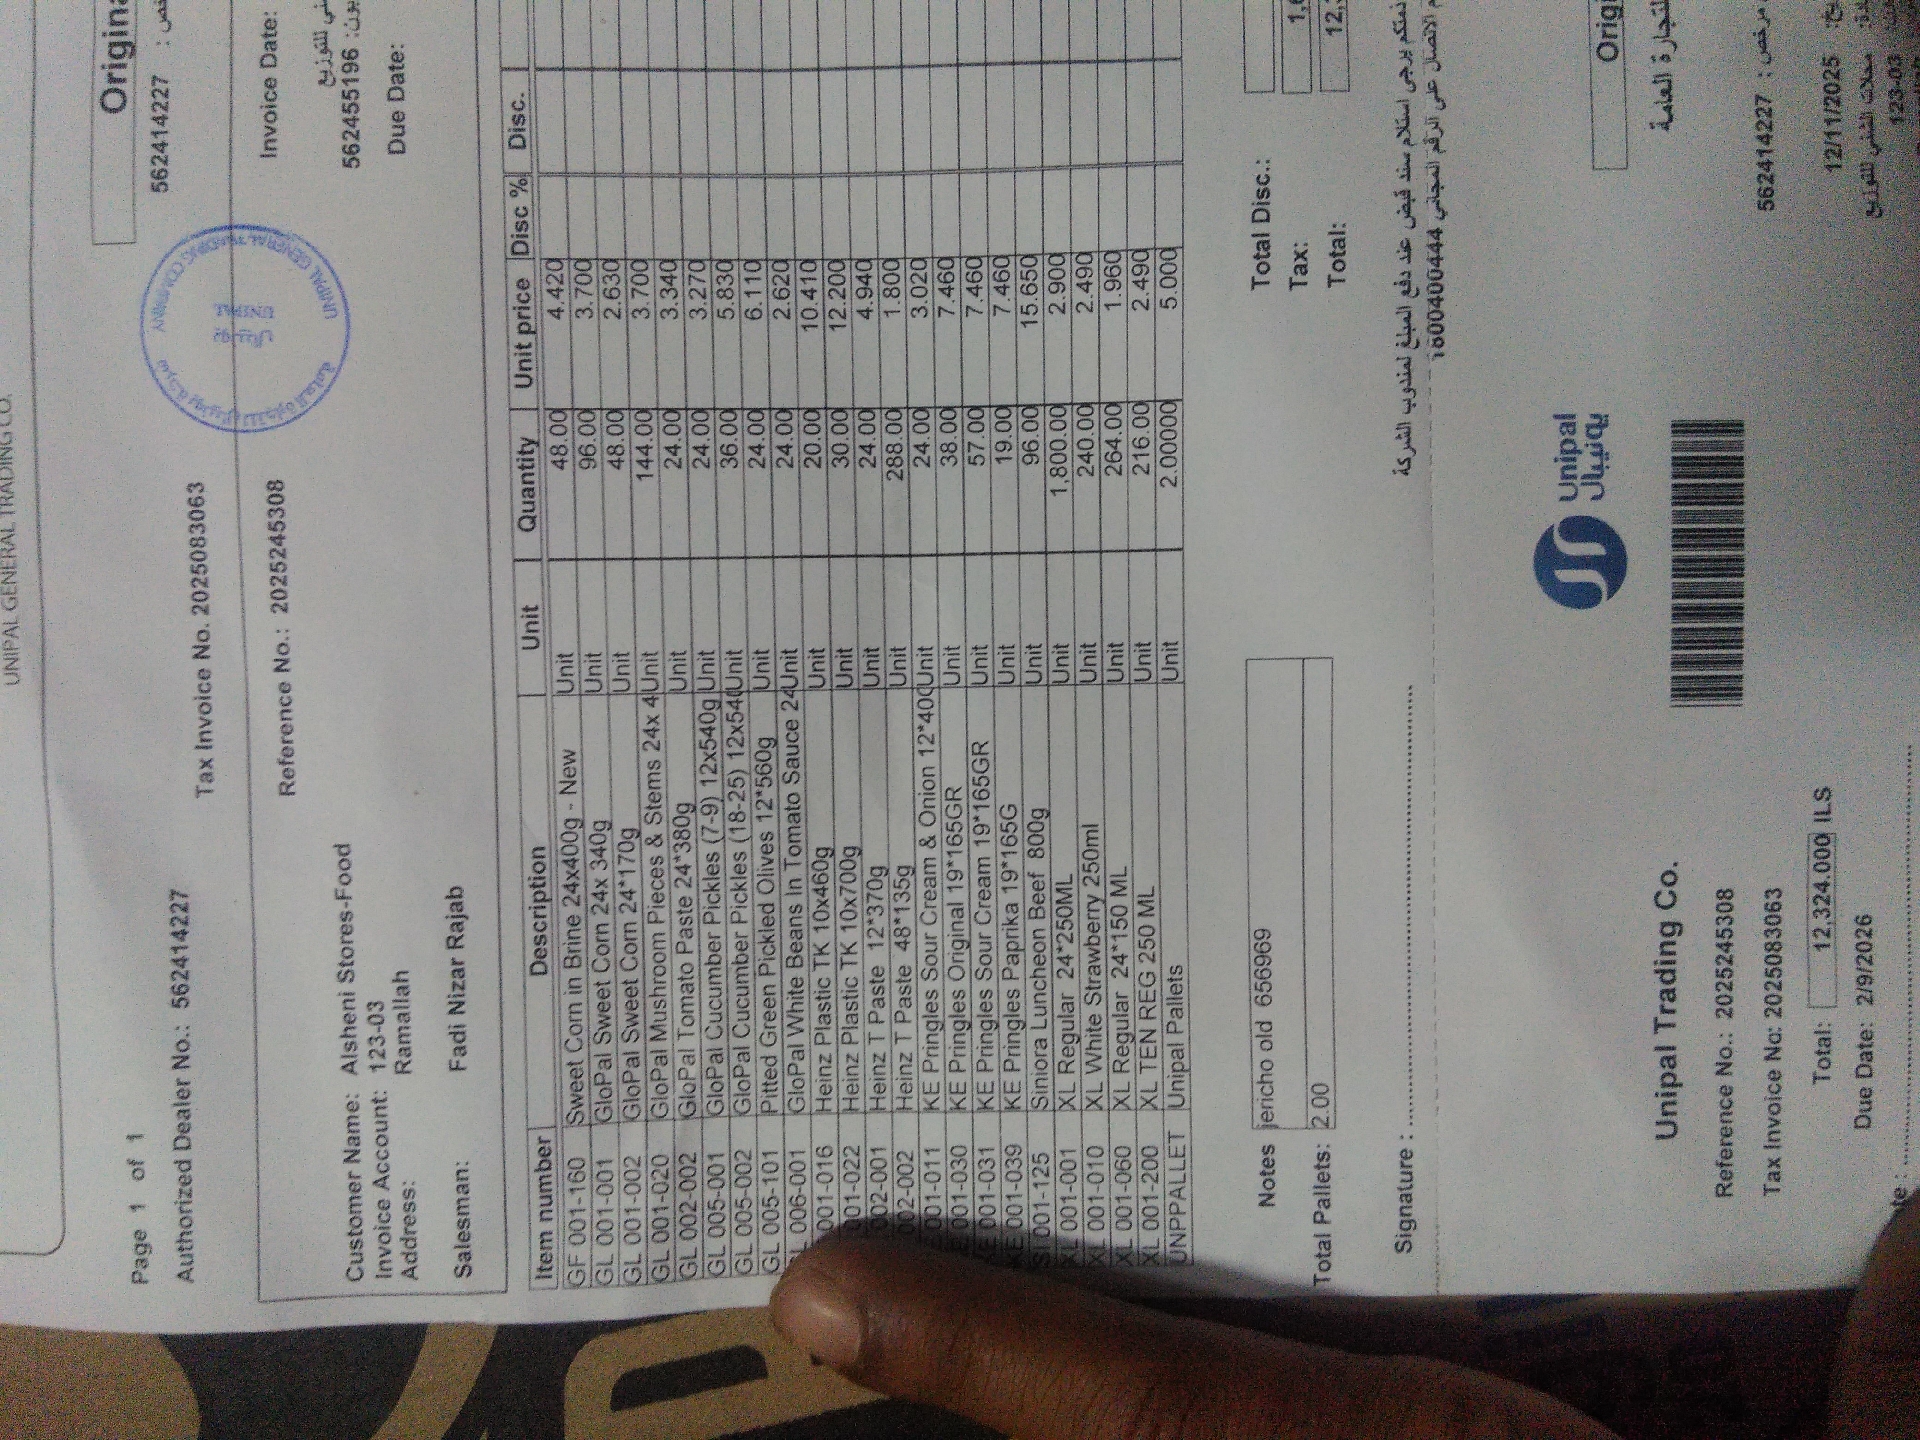 UNIPAL GENERAL TRADING CO.
Page 1 of 1
Authorized Dealer No.: 562414227
562414227 :
Tax Invoice No. 2025083063
Reference No.: 2025245308
Invoice Date:
للتوزيع
Customer Name: Alsheni Stores-Food
562455196
Invoice Account: 123-03
Address: Ramallah
Due Date:
Salesman: Fadi Nizar Rajab
Item number Description Unit Quantity Unit price Disc % Disc.
GF 001-160 Sweet Corn in Brine 24x400g - New Unit 48.00 4.420
GL 001-001 GloPal Sweet Corn 24x 340g Unit 96.00 3.700
GL 001-002 GloPal Sweet Corn 24*170g Unit 48.00 2.630
GL 001-020 GloPal Mushroom Pieces & Stems 24x 4 Unit 144.00 3.700
GL 002-002 GloPal Tomato Paste 24*380g Unit 24.00 3.340
GL 005-001 GloPal Cucumber Pickles (7-9) 12x540g Unit 24.00 3.270
GL 005-002 GloPal Cucumber Pickles (18-25) 12x54 Unit 36.00 5.830
GL 005-101 Pitted Green Pickled Olives 12*560g Unit 24.00 6.110
006-001 GloPal White Beans In Tomato Sauce 24 Unit 24.00 2.620
001-016 Heinz Plastic TK 10x460g Unit 20.00 10.410
001-022 Heinz Plastic TK 10x700g Unit 30.00 12.200
002-001 Heinz T Paste 12*370g Unit 24.00 4.940
002-002 Heinz T Paste 48*135g Unit 288.00 1.800
001-011 KE Pringles Sour Cream & Onion 12*40 Unit 24.00 3.020
001-030 KE Pringles Original 19*165GR Unit 38.00 7.460
001-031 KE Pringles Sour Cream 19*165GR Unit 57.00 7.460
KE 001-039 KE Pringles Paprika 19*165G Unit 19.00 7.460
001-125 Siniora Luncheon Beef 800g Unit 96.00 15.650
XL 001-001 XL Regular 24*250ML Unit 1,800.00 2.900
XL 001-010 XL White Strawberry 250ml Unit 240.00 2.490
XL 001-060 XL Regular 24*150 ML Unit 264.00 1.960
XL 001-200 XL TEN REG 250 ML Unit 216.00 2.490
UNPPALLET Unipal Pallets Unit 2.00000 5.000
Notes jericho old 656969
Total Disc.:
Tax:
Total Pallets: 2.00
Total:
يرجى استلام سند قبض عند دفع المبلغ لمندوب الشركة
الاتصال على الرقم المجاني 1800400444
Signature :
Unipal
يونيبال
Unipal Trading Co.
للتجارة العامة
Reference No.: 2025245308
Tax Invoice No: 2025083063
562414227 :
Total: 12,324.000 ILS
12/11/2025
Due Date: 2/9/2026
123-03